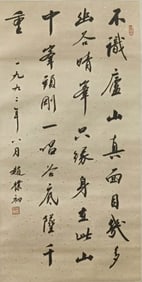 不識廬山真面目幾多
幽谷晴峯只緣身在此山
中峯頭剛一唱谷底陸千
重
一九六二年八月 趙樸初